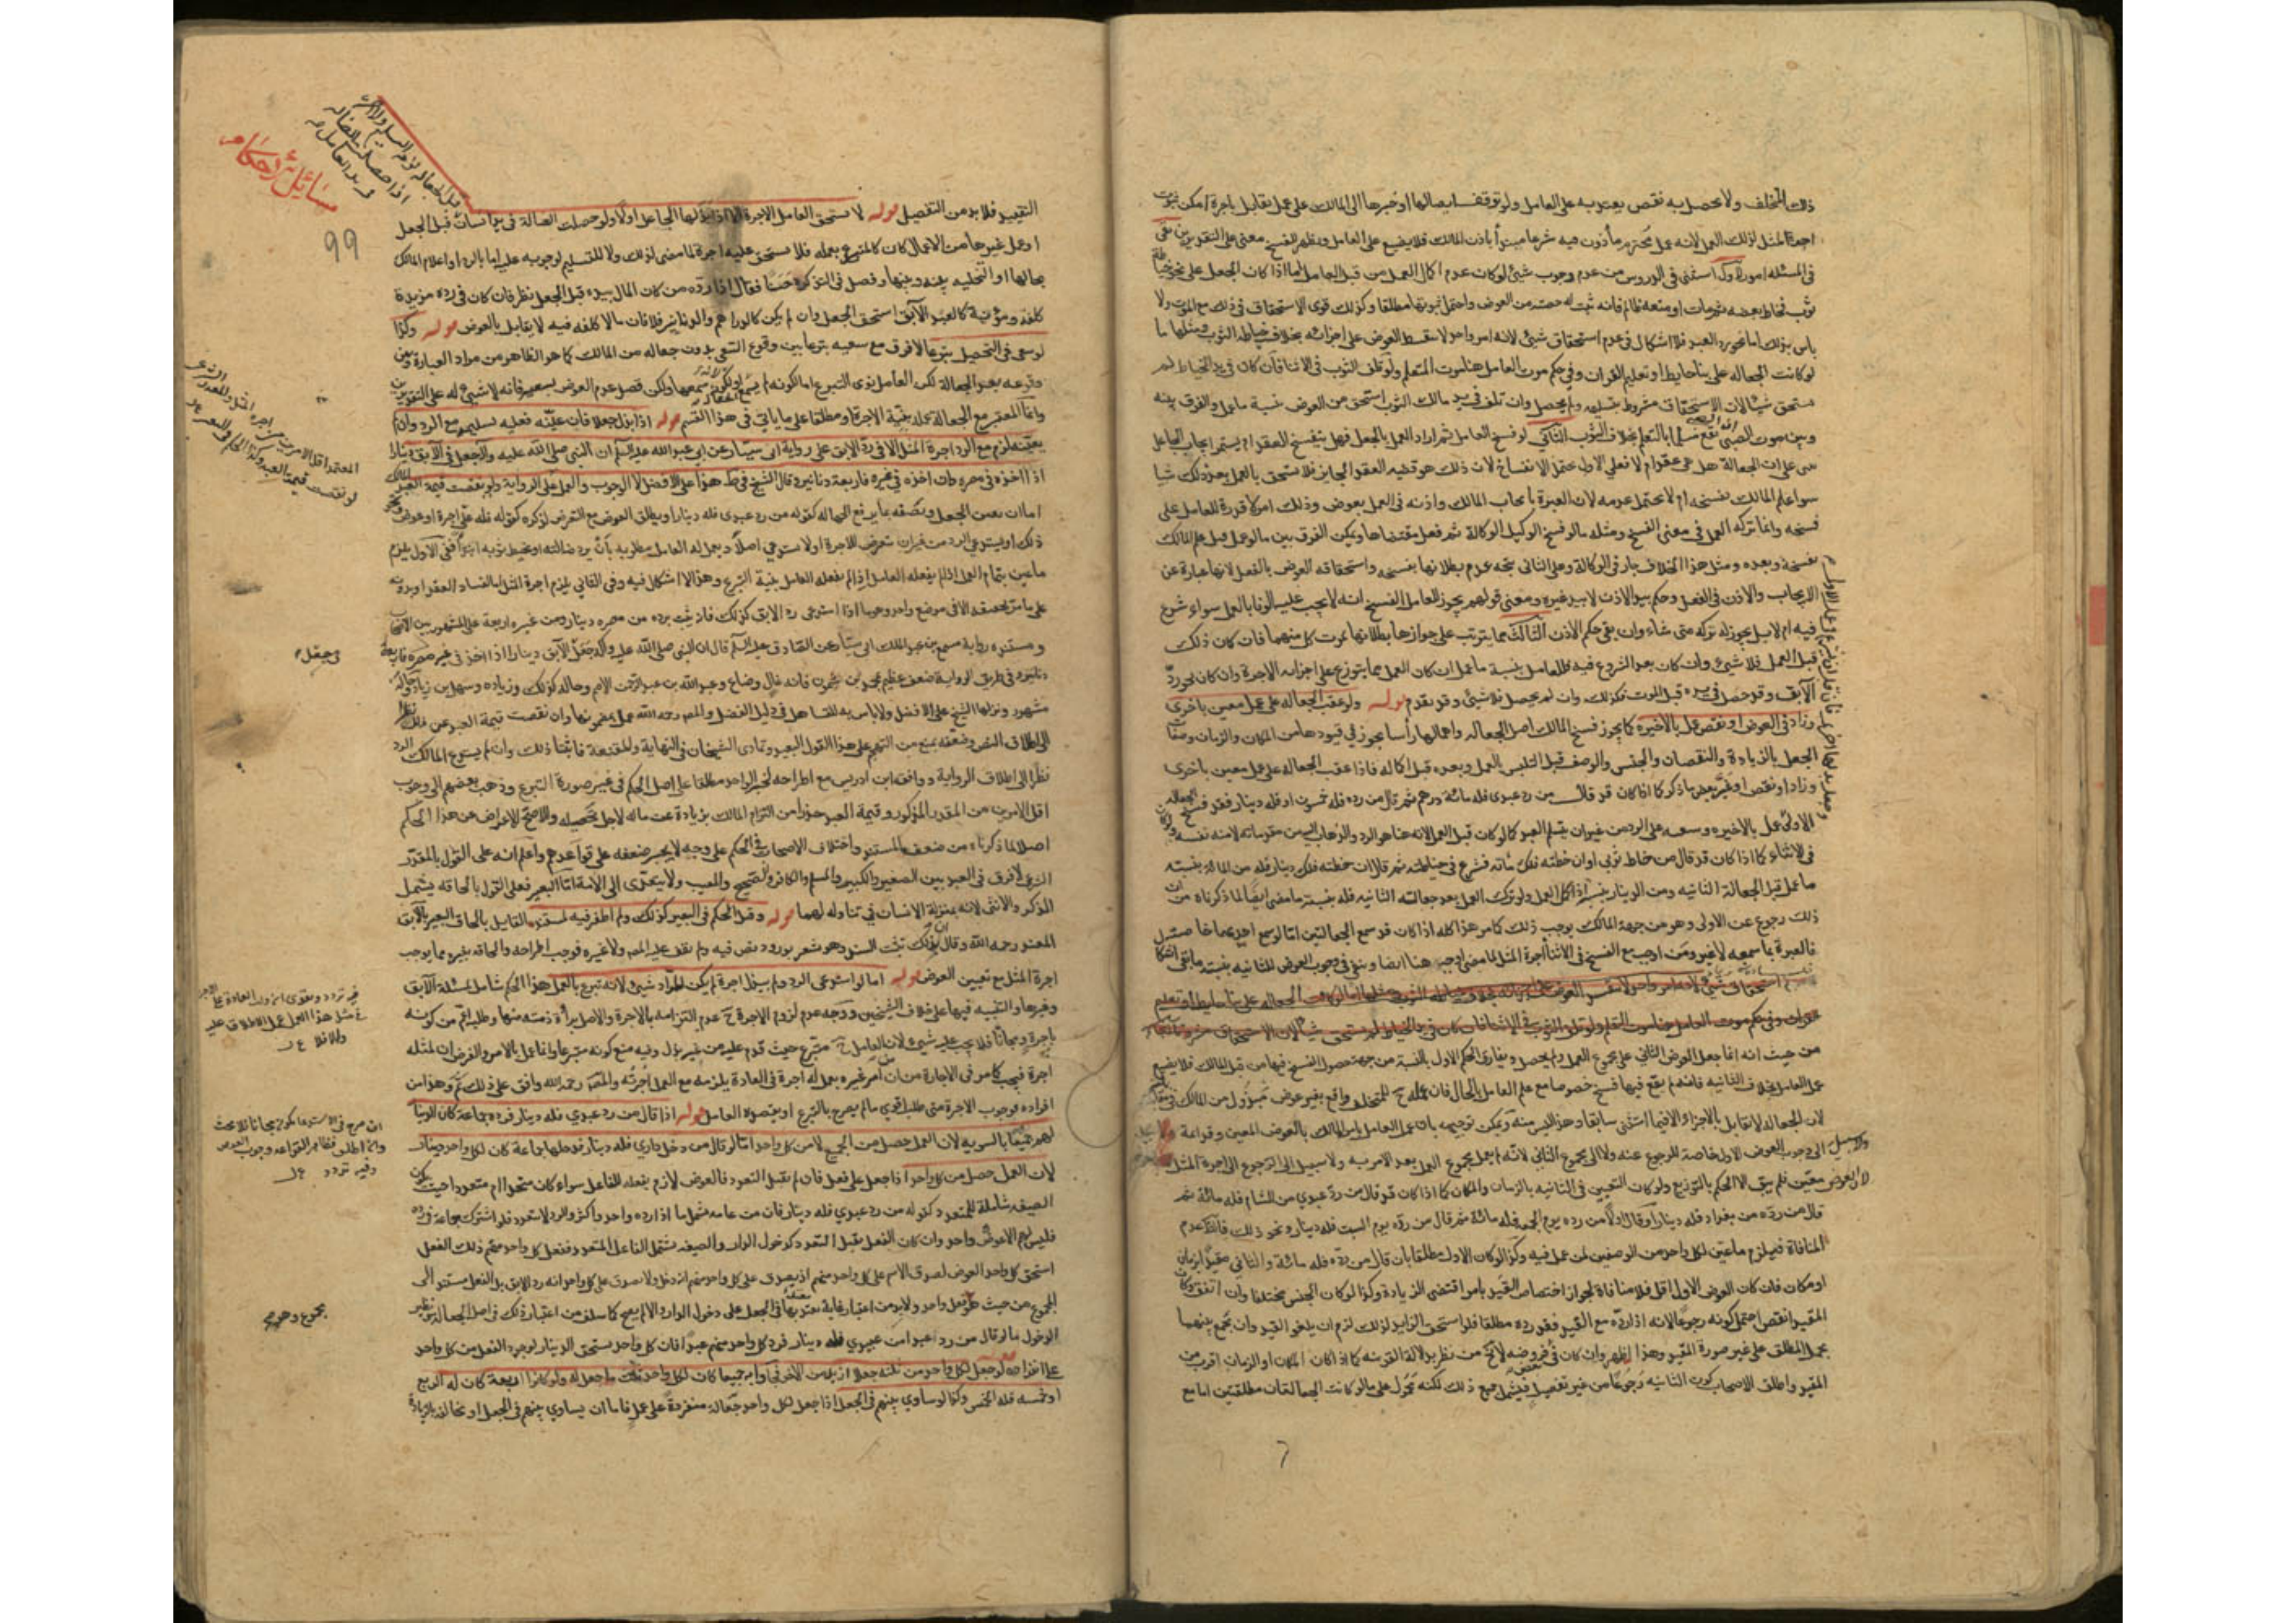 ذلك المتخلف ولا يحصل به نقص يعتد به على العامل ولو توقف ايصالها او خبرها الى المالك على عمل يقابل باجرة امكن ثبوت
اجرة المثل لذلك العمل لانه عمل محترم مأذون فيه شرعا مبتدأ باذن المالك فلا يضيع على العامل ويظهر للفسخ معنى على التقديرين بقى
في المسئلة امور استثنى في الدروس من عدم وجوب شيئ لو كان عدم اكمال العمل من قبل العامل ما اذا كان الجعل على نحو خياطة
ثوب فخاط بعضه ثم مات او منعه ظالم فانه تثبت له حصته من العوض واحتمل ثبوتها مطلقا وكذلك قوى الاستحقاق في ذلك مع الموت ولا
باس بذلك اما نحو رد العبد فلا اشكال في عدم استحقاق شيئ لانه امر واحد لا يقسط العوض على اجزائه بخلاف خياطة الثوب ومثلها ما
لو كانت الجعالة على بناء حايط او تعليم القران وفي حكم موت العامل هنا موت المتعلم ولو تلف الثوب في الاثنا فان كان في يد الخياط لم
يستحق شيئا لان الاستحقاق مشروط بتسليمه ولم يحصل وان تلف في يد مالك الثوب استحق من العوض بنسبة ما عمل والفرق بينه
وبين موت الصبي انه يقع مسلما بالتعلم بخلاف الثوب الثاني لو فسخ العامل ثم اراد العمل بالجعل فهل ينفسخ العقد ام يستمر ايجاب الجاعل
على ان الجعالة هل هي عقد ام لا فعلى الاول يحتمل الانفساخ لان ذلك هو قضيه العقود الجايزة فلا يستحق بالعمل بعد ذلك شيا
سوا علم المالك بفسخه ام لا يحتمل عدمه لان العبرة بايجاب المالك واذنه في العمل بعوض وذلك امر لا قدرة للعامل على
فسخه وانما تركه العمل في معنى الفسخ ومثله ما لو فسخ الوكيل الوكالة ثم فعل مقتضاها ويمكن الفرق بين ما لو عمل قبل علم المالك
بفسخه وبعده ومثل هذا الخلاف جار في الوكالة وعلى الثاني يتجه عدم بطلانها بفسخه واستحقاقه العوض بالفعل لانها عبارة عن
الايجاب والاذن في الفعل وحكم بيد الاذن لا بيد غيره ومعنى قولهم يجوز للعامل الفسخ انه لا يجب عليه الوفا بالعمل سواء شرع
فيه ام لا بل يجوز له تركه متى شاء وان بقى حكم الاذن الثالث مما يترتب على جوازها بطلانها بموت كل منهما فان كان ذلك
قبل العمل فلا شيئ وان كان بعد الشروع فيه فللعامل بنسبة ما عمل ان كان العمل مما يتوزع على اجزائه الاجرة وان كان نحو ردّ
الآبق وقد حصل في يده قبل الموت فكذلك وان لم يحصل فلا شيئ وقد تقدم قوله ولو عقب الجعالة على عمل معين باخرى
وزاد في العوض او نقص عمل بالاخيرة كما يجوز فسخ المالك اصل الجعالة واهمالها رأسا يجوز في قيودها من المكان والزمان وصفات
الجعل بالزيادة والنقصان والجنس والوصف قبل التلبس بالعمل وبعده قبل اكماله فاذا عقب الجعالة على عمل معين باخرى
وزاد او نقص او غيّر بعض ما ذكر كما اذا كان قد قال من رد عبدى فله مائة درهم ثم قال من رده فله خمسون او فله دينار فقد فسخ الجعالة
الاولى عمل بالاخيرة وسعيه على الرد من غير ان يتسلم العبد كما لو كان قبل العمل لانه هنا هو الرد والذهاب اليه من مقدماته لا منه نفسه ولو كان
في الاثناء كما اذا كان قد قال من خاط ثوبى او ان خطته فلك مائة فشرع في خياطته ثم قال ان خطته فلك دينار فله من المائة بنسبته
ما عمل قبل الجعالة الثانيه ومن الدينار بنسبة اذا كمل العمل ولو ترك العمل بعد جعالته الثانيه فله بنسبة ما مضى ايضا لما ذكرناه من ان
ذلك رجوع عن الاولى وهو من جهة المالك يوجب ذلك كما مر هذا كله اذا كان قد سمع الجعالتين اما لو سمع احديهما خاصة
فالعبرة بما سمعه لا غير ومن اوجب مع الفسخ في الاثنا اجرة المثل لما مضى اوجبه هنا ايضا وبقى في وجوب العوض للثانيه بنسبة ما بقى اشكال
من حيث انه انما جعل العوض الثاني على مجموع العمل ولم يحصل ويفارق الحكم الاول بالنسبة من جهة حصول الفسخ فيها من قبل المالك فلا يضيع
عمل العامل بخلاف الثانيه فانه لم يقع فيها فسخ خصوصا مع علم العامل بالحال فان عمله ح للمتخلف واقع بغير عوض مبذول من المالك في مقابلته
لان الجعاله لا تقابل بالاجزاء الا فيما استثنى سابقا وهذا ليس منه ويمكن توجيهه بان عمل العامل بامر المالك بالعوض المعين وقد
الى وجوب العوض الاول خاصة للرجوع عنه ولا الى مجموع الثاني لانه لم يعمل مجموع العمل بعد الامر به ولا سبيل الى الرجوع الى اجرة المثل
لانه بعوض معين فلم يبق الا الحكم بالتوزيع ولو كان التعيين في الثانيه بالزمان والمكان كما اذا كان قد قال من ردّ عبدي من الشام فله مائة ثم
قال من ردّه من بغداد فله دينار او قال اولا من رده يوم الجمعة فله مائة ثم قال من ردّه يوم السبت فله دينار ونحو ذلك فالظاهر عدم
المنافاة فيلزم ما عين لكل واحد من الوصفين لمن عمل فيه وكذا لو كان الاول مطلقا بان قال من ردّه فله مائة والثاني مقيدا بزمان
او مكان فان كان العوض الاول اقل فلا منافاة لجواز اختصاص القيد بامر اقتضى الزيادة وكذا لو كان الجنس مختلفا وان اتفق وكان
المقيد انقص احتمل كونه رجوعا لانه اذا ردّه مع القيد فقد رده مطلقا فلو استحق الزايد لذلك لزم ان يلغو القيد وان يجمع بينهما
بحمل المطلق على غير صورة المقيد وهذا اظهر وان كان في بعض فروضه لا يخ من نظر بدلالة القرينه كما اذا كان المكان او الزمان اقرب من
المقيد واطلق الاصحاب كون الثانيه رجوعا من غير تفصيل فيشمل جميع ذلك لكنه محمول على ما لو كانت الجعالتان مطلقتين اما مع
التقييد فلا بد من التفصيل قوله لا يستحق العامل الاجرة الا اذا بذلها الجاعل اولا ولو حصلت الضالة في يد انسان قبل الجعل
او عمل غيرها من الاعمال كان كالمتبرع بعمله فلا يستحق عليه اجرة لما مضى لذلك ولا للتسليم لوجوبه عليه اما بالرد او اعلام المالك
بحالها او التخليه بينه وبينها وفصل في التذكرة حسنا فقال اذا رده من كان المال بيده قبل الجعل نظر فان كان في رده مزيد
كلفة ومؤنة كالعبد الآبق استحق الجعل وان لم يكن كالدراهم والدنانير فلا فان ما لا كلفة فيه لا يقابل بالعوض قوله وكذا
لو سعى في التحصيل تبرعا لا فرق مع سعيه تبرعا بين وقوع السعى بدون جعاله من المالك كما هو الظاهر من مراد العبارة وبين
وقوعه بعد الجعالة لكن العامل نوى التبرع اما لكونه لم يسمعها او لكونه سمعها ولكن قصد عدم العوض بسعيه فانه لا شيئ له على التقديرين
وانما المعتبر مع الجعالة عمله بنية الاجرة او مطلقا على ما ياتي في هذا القسم قوله اذا بذل جعلا فان عيّنه فعليه تسليمه مع الرد وان لم
يعيّنه لزم مع الرد اجرة المثل الا في ردّ الآبق على رواية ابى سيّار عن ابي عبد الله عليه السلم ان النبي صلى الله عليه وآله جعل في الآبق دينارا
اذا اخذه في مصره وان اخذه في غيره فاربعة دنانير وقال الشيخ في ط هذا على الافضل لا الوجوب والعمل على الرواية ولو نقصت قيمة العبد
اما ان يعين الجعل ويصفه بما يرفع الجهاله كقوله من رد عبدى فله دينار او يطلق العوض مع التعرض لذكره كقوله فله على اجرة او عوض
ذلك او يستدعي الرد من غير ان يتعرض للاجرة او لا يستدعي اصلا ويعمل له العامل مطلوبه بان يرد ضالته او يخيط ثوبه ابتدأ ففي الاول يلزم
ما عين بتمام العمل اذا لم يفعله العامل بنية التبرع وهذا لا اشكال فيه وفي الثاني يلزم اجرة المثل اما لفساد العقد او بدونه
على ما مر تحقيقه الا في موضع واحد وهو ما اذا استدعى رد الآبق كذلك فانه يثبت برده من مصره دينار ومن غيره اربعة على المشهور بين الاصحاب
ومستنده رواية مسمع بن عبد الملك ابى سيّار عن الصادق عليه السلم قال ان النبي صلى الله عليه واله جعل في الآبق دينارا اذا اخذ في مصره وفي غير مصره فاربعة
دنانير وفي طريق الرواية ضعف عظيم بمحمد بن شمون فانه غال وضاع وعبد الله بن عبد الرحمن الاصم وحاله كذلك وزياده وسهل بن زياد وحاله
مشهور ونزلها الشيخ على الافضل ولا باس به للتساهل في دليل الفضل والمص رحمه الله عمل بمضمونها وان نقصت قيمة العبد عن ذلك نظرا
الى اطلاق النص وضعفه يمنع من التهجم على هذا القول البعيد وتمادى الشيخان في النهاية والمقنعة فاثبتا ذلك وان لم يستدع المالك الرد
نظرا الى اطلاق الرواية ووافقه ابن ادريس مع اطراحه لخبر الواحد مطلقا على اصل الحكم في غير صورة التبرع وذهب بعضهم الى وجوب
اقل الامرين من المقدر المذكور وقيمة العبد حذرا من التزام المالك بزيادة عن ماله لاجل تحصيله والاصح الاعراض عن هذا الحكم
اصلا لما ذكرناه من ضعف المستند واختلاف الاصحاب في الحكم على وجه لا يجبر ضعفه على قواعدهم واعلم انه على القول بالمقدر
الشرعى لا فرق في العبد بين الصغير والكبير والمسلم والكافر والصحيح والمعيب ولا يتعدى الى الامة اما البعير فعلى القول بالحاقه يشمل
الذكر والانثى لانه بمنزلة الانسان في تناوله لهما قوله وقيل الحكم في البعير كذلك ولم اظفر فيه بمستند القايل بالحاق البعير بالآبق
المفيد رحمه الله وقال ان بذلك ثبتت السنة وهو يشعر بورود نص فيه ولم نقف عليه المص ولا غيره فوجب اطراحه والحاقه بغيره مما يوجب
اجرة المثل مع تعيين العوض قوله اما لو استدعى الرد ولم يبذل اجرة لم يكن للرّاد شيئ لانه تبرع بالعمل هذا الحكم شامل لمسئلة الآبق
وغيرها والتنبيه فيها على خلاف الشيخين ووجه عدم لزوم الاجرة ح عدم التزامه بالاجرة والاصل برأة ذمته منها وطلبه اعم من كونه
باجرة ومجانا فلا يجب عليه شيئ لان العامل ح متبرع حيث قدم عليه من غير بذل وفيه منع كونه متبرعا وانما عمل بالامر والفرض ان لمثله
اجرة فيجب كما مر في الاجارة من ان من امر غيره بعمل له اجرة في العادة يلزمه مع العمل اجرته والمص رحمه الله وافق على ذلك ثم وهذا من
افراده فوجوب الاجرة متى طلب اقوى ما لم يصرح بالتبرع او يقصده العامل قوله اذا قال من رد عبدي فله دينار فرده جماعة كان الدينار
لهم جميعا بالسويه لان العمل حصل من الجميع لا من كل واحد اما لو قال من دخل داري فله دينار فدخلها جماعة كان لكل واحد دينار
لان العمل حصل من كل واحد اذا جعل على فعل فان لم يقبل التعدد فالعوض لازم بفعله للفاعل سواء كان متحدا ام متعددا حيث تكون
الصيغه شاملة للمتعدد كقوله من رد عبدي فله دينار فان من عامه تشمل ما اذا رده واحد واكثر والرد لا يتعدد فلو اشترك جماعة في رده
فليس لهم الا عوض واحد وان كان الفعل يقبل التعدد كدخول الدار والصيغه تشمل الفاعل المتعدد ففعل كل واحد منهم ذلك الفعل
استحق كل واحد العوض لصدق الاسم على كل واحد منهم اذ يصدق على كل واحد منهم انه دخل ولا يصدق على كل واحد انه رد الآبق بل الفعل مستند الى
المجموع من حيث هو فعل واحد ولا بد من اعتبار غاية يعتد بها في الجعل على دخول الدار والا لم يصح كما سلف من اعتبار ذلك في اصل الجعالة ونظير
الدخول ما لو قال من رد عبدا من عبيدي فله دينار فرد كل واحد منهم عبدا فان كل واحد يستحق الدينار لوجود الفعل من كل واحد
على انفراده لو جعل لكل واحد من ثلثة جعلا ازيد من الآخر فجاؤا به جميعا كان لكل واحد ثلث ما جعل له ولو كانوا اربعة كان له الربع
او خمسه فله الخمس وكذا لو ساوى بينهم في الجعل اذا جعل لكل واحد جعالة منفردة على عمل فاما ان يساوي بينهم في الجعل او يخالف بالزيادة
مسائل احكام
99
وجعل
مجموع وهو